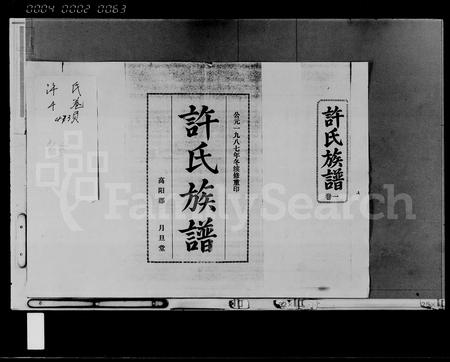 0004 0002 0063
許氏族譜
卷一
公元一九八七年冬续修重印
許氏族譜
高阳郡 月旦堂
许氏
卷
493頁
FamilySearch